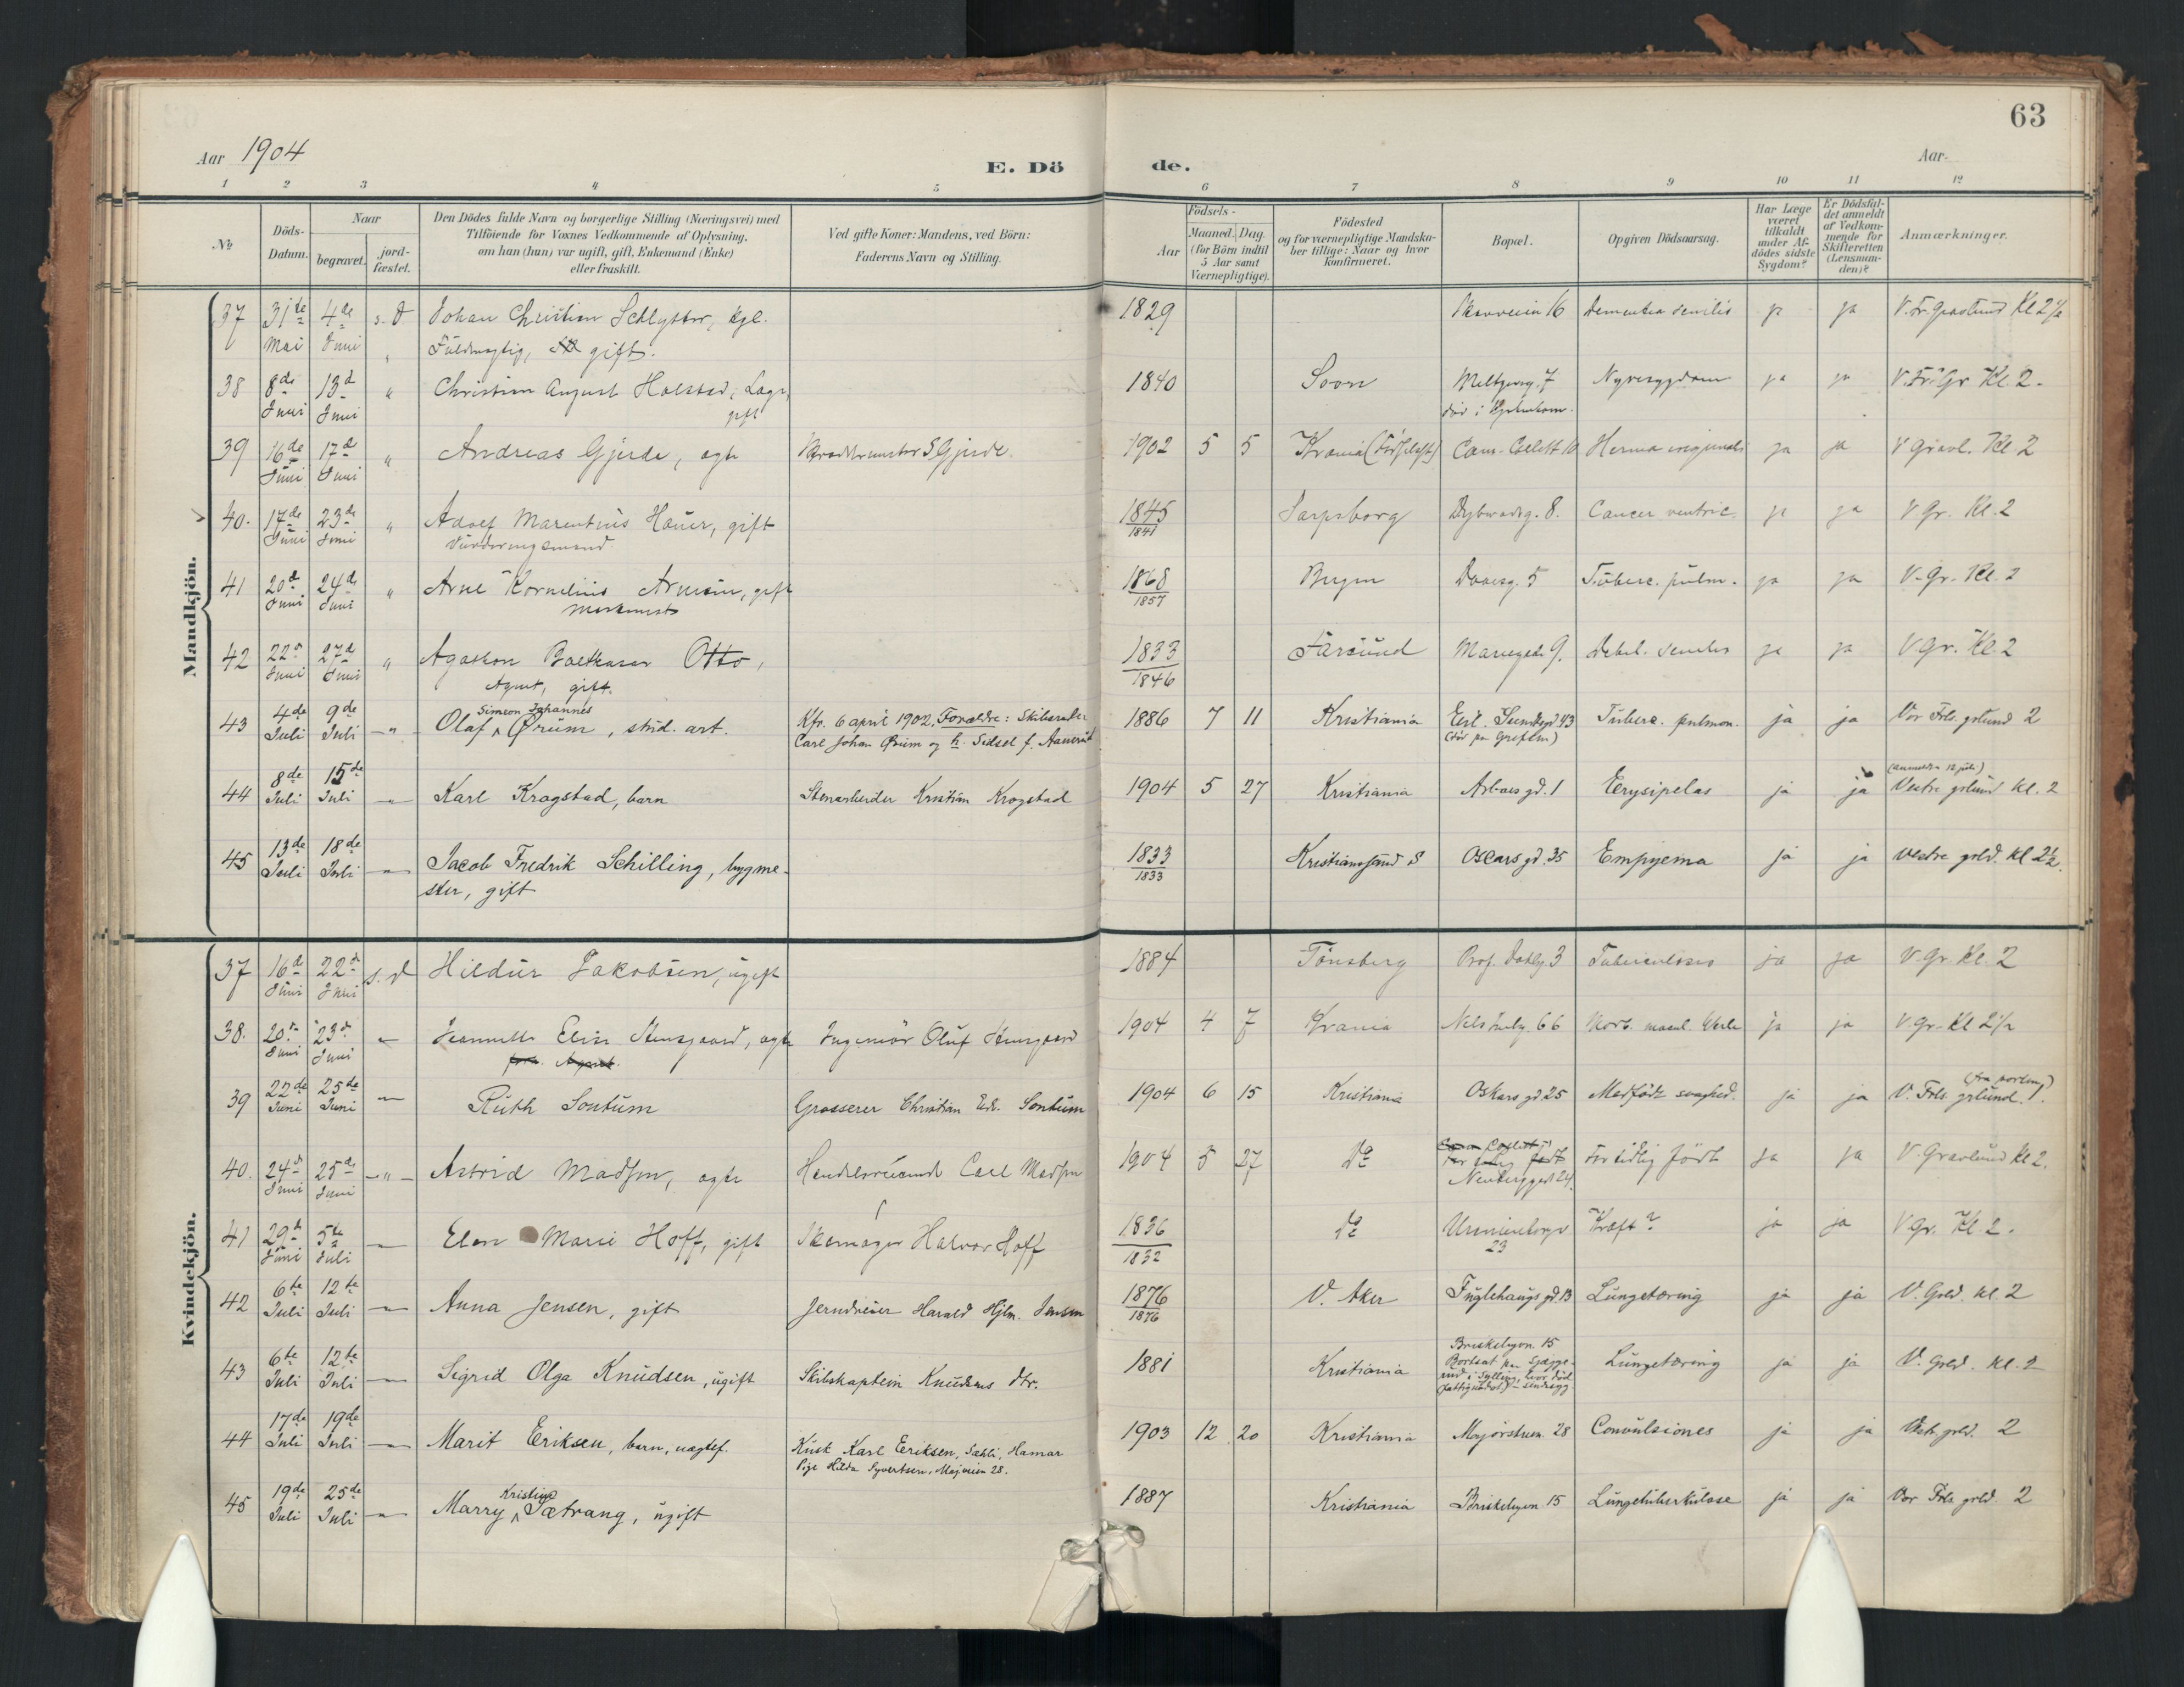 63
Aar 1904
E. Dö de.
Aar
1 2 3 4 5 6 7 8 9 10 11 12
№
Döds-Datum.
Naar
begravet.
jord-fæstet.
Den Dödes fulde Navn og borgerlige Stilling (Næringsvei) med
Tilföiende for Voxnes Vedkommende af Oplysning,
om han (hun) var ugift, gift, Enkemand (Enke)
eller fraskilt.
Ved gifte Koner: Mandens, ved Börn:
Faderens Navn og Stilling.
Födsels-
Aar
Maaned. Dag
(for Börn indtil
5 Aar samt
Værnepligtige).
Födested
og for værnepligtige Mandska-
ber tillige: Naar og hvor
konfirmeret.
Bopæl.
Opgiven Dödsaarsag.
Har Læge
været
tilkaldt
under Af-
dödes sidste
Sygdom?
Er Dödsfal-
det anmeldt
af Vedkom-
mende for
Skifteretten
(Lensman-
den)?
Anmærkninger.
Mandkjön.
37 31te Mai 4de Juni s. d Johan Christian Schlytter, kgl. 1829 16 Dementia senilis ja ja V. Fr. Gravlund Kl 2½
Fuldmægtig, gift.
38 8de Juni 13d Juni " Christian August Holstad, gift 1840 Soon Meltzersg. 7 Nyresygdom ja ja V. Fr. Gr Kl. 2.
39 16de Juni 17d Juni " Andreas Gjerde, ægte S. Gjerde 1902 5 5 Krania ja ja V Gravl. Kl 2
40. 17de Juni 23de Juni " Adolf Marentius Hauer, gift 1845 1841 Sarpsborg Dybwadsg. 8. Cancer ventric. ja ja V Gr. Kl. 2
Vurderingsmand
41 20d Juni 24de Juni " Arne Kornelius Arnesen, gift 1868 1857 Bergen Daaesg. 5 Tuberc. pulm. ja ja V. Gr. Kl. 2
42 22d Juni 27d Juni " Agathon Balthazar Otto, 1833 1846 Farsund Mariegade 9. Debil. senilis ja ja V Gr. Kl. 2
Agent, gift.
43 4de Juli 9de Juli " Olaf Simeon Johannes Ørum, stud. art. Kfr. 6 april 1902, Forældre: Skibsreder 1886 7 11 Kristiania Eil. Sundsgd 43 Tuberc. pulmon. ja ja Vor Frls. grlund 2
Carl Johan Ørum og h. Sidsel f.
(død paa Grefsen)
44 8de Juli 15de Juli " Karl Krogstad, barn Stenarbeider Kristian Krogstad 1904 5 27 Kristiania Arboes gd. 1 Erysipelas ja ja Vestre grlund kl. 2
(anmeldt 12 juli)
45 13de Juli 18de Juli " Jacob Fredrik Schilling, bygme- 1833 1833 Kristiansand S Oscars gd. 35 Empyema ja ja Vestre grld. kl 2½.
ster, gift
Kvindekjön.
37 16d Juni 22d Juni s. d Hildur Jakobsen, ugift 1884 Tönsberg Prof. Dahlsg 3 Tuberculosis ja ja V Gr. Kl. 2
38. 20d Juni 23d Juni " Jeannette Elise Stensgaard, ægte Ingeniör Oluf Stensgaard 1904 4 7 Krania Nils Juelsg. 66 Morb. macul. Werlh ja ja V Gr. Kl 2½
39 22de Juni 25de Juni " Ruth Sontum Grosserer Christian Edv. Sontum 1904 6 15 Kristiania Oskars gd. 25 Medfödt svaghed. ja ja V. Frls. grlund. 1.
40. 24d Juni 25de Juni " Astrid Madsen, ægte Handelsreisende Carl Madsen 1904 5 27 do Neuberggad 24. For tidlig født ja ja V. Gravlund kl 2.
41 29d Juni 5te Juli " Elen Marie Hoff, gift Skomager Halvor Hoff 1836 1832 do 23 Kræft? ja ja V Gr. Kl 2.
42 6te Juli 12te Juli " Anna Jensen, gift Jerndreier Harald Hjlm. Jensen 1876 1876 V. Aker Fuglehaugs gd. 13 Lungetæring ja ja V. Grld. kl. 2
43 6te Juli 12te Juli " Sigrid Olga Knudsen, ugift Skibskaptein Knudsens dtr. 1881 Kristiania Briskebyvn. 15 Lungetæring ja ja V. Grld. kl. 2
44 17de Juli 19de Juli " Marit Eriksen, barn, uægtef. Kusk Karl Eriksen, Hamar 1903 12 20 Kristiania Majorstuvn. 28 Convulsiones ja ja Vestr. grld. 2
Pige Hilda Syvertsen, Majveien 28.
45 19de Juli 25de Juli " Marry Kristine Sætrang, ugift 1887 Kristiania Briskebyvn. 15 Lungetuberkulose ja ja Vor Frls. grld. 2